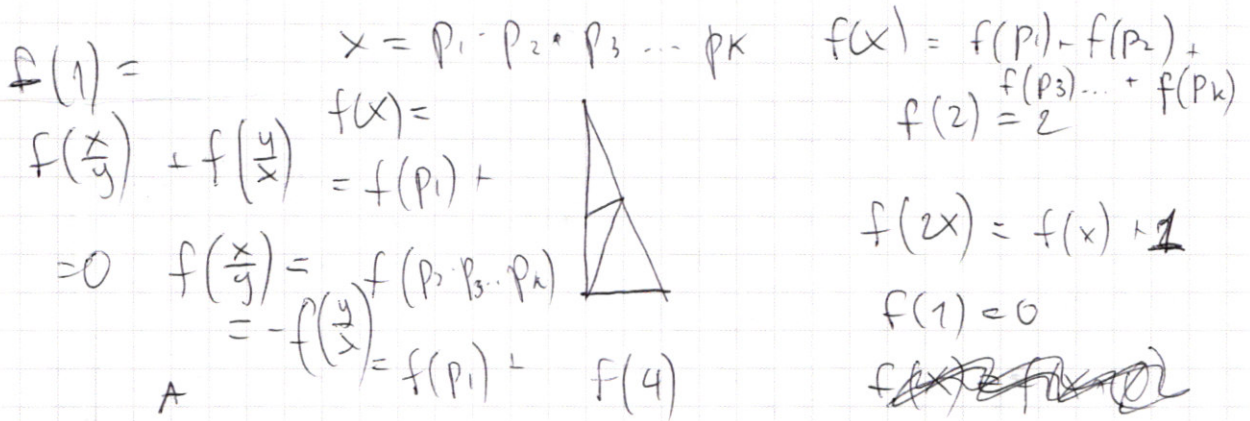 f(1) =
f(x/y) + f(y/x)
=0 f(x/y) =
= -f(y/x)
A
x = p₁ · p₂ · p₃ ... pk
f(x) =
= f(p₁) +
f(p₂·p₃..pk)
= f(p₁) +
f(4)
f(x) = f(p₁) + f(p₂) +
f(p₃)... + f(pk)
f(2) = 2
f(2x) = f(x) + 1
f(1) = 0